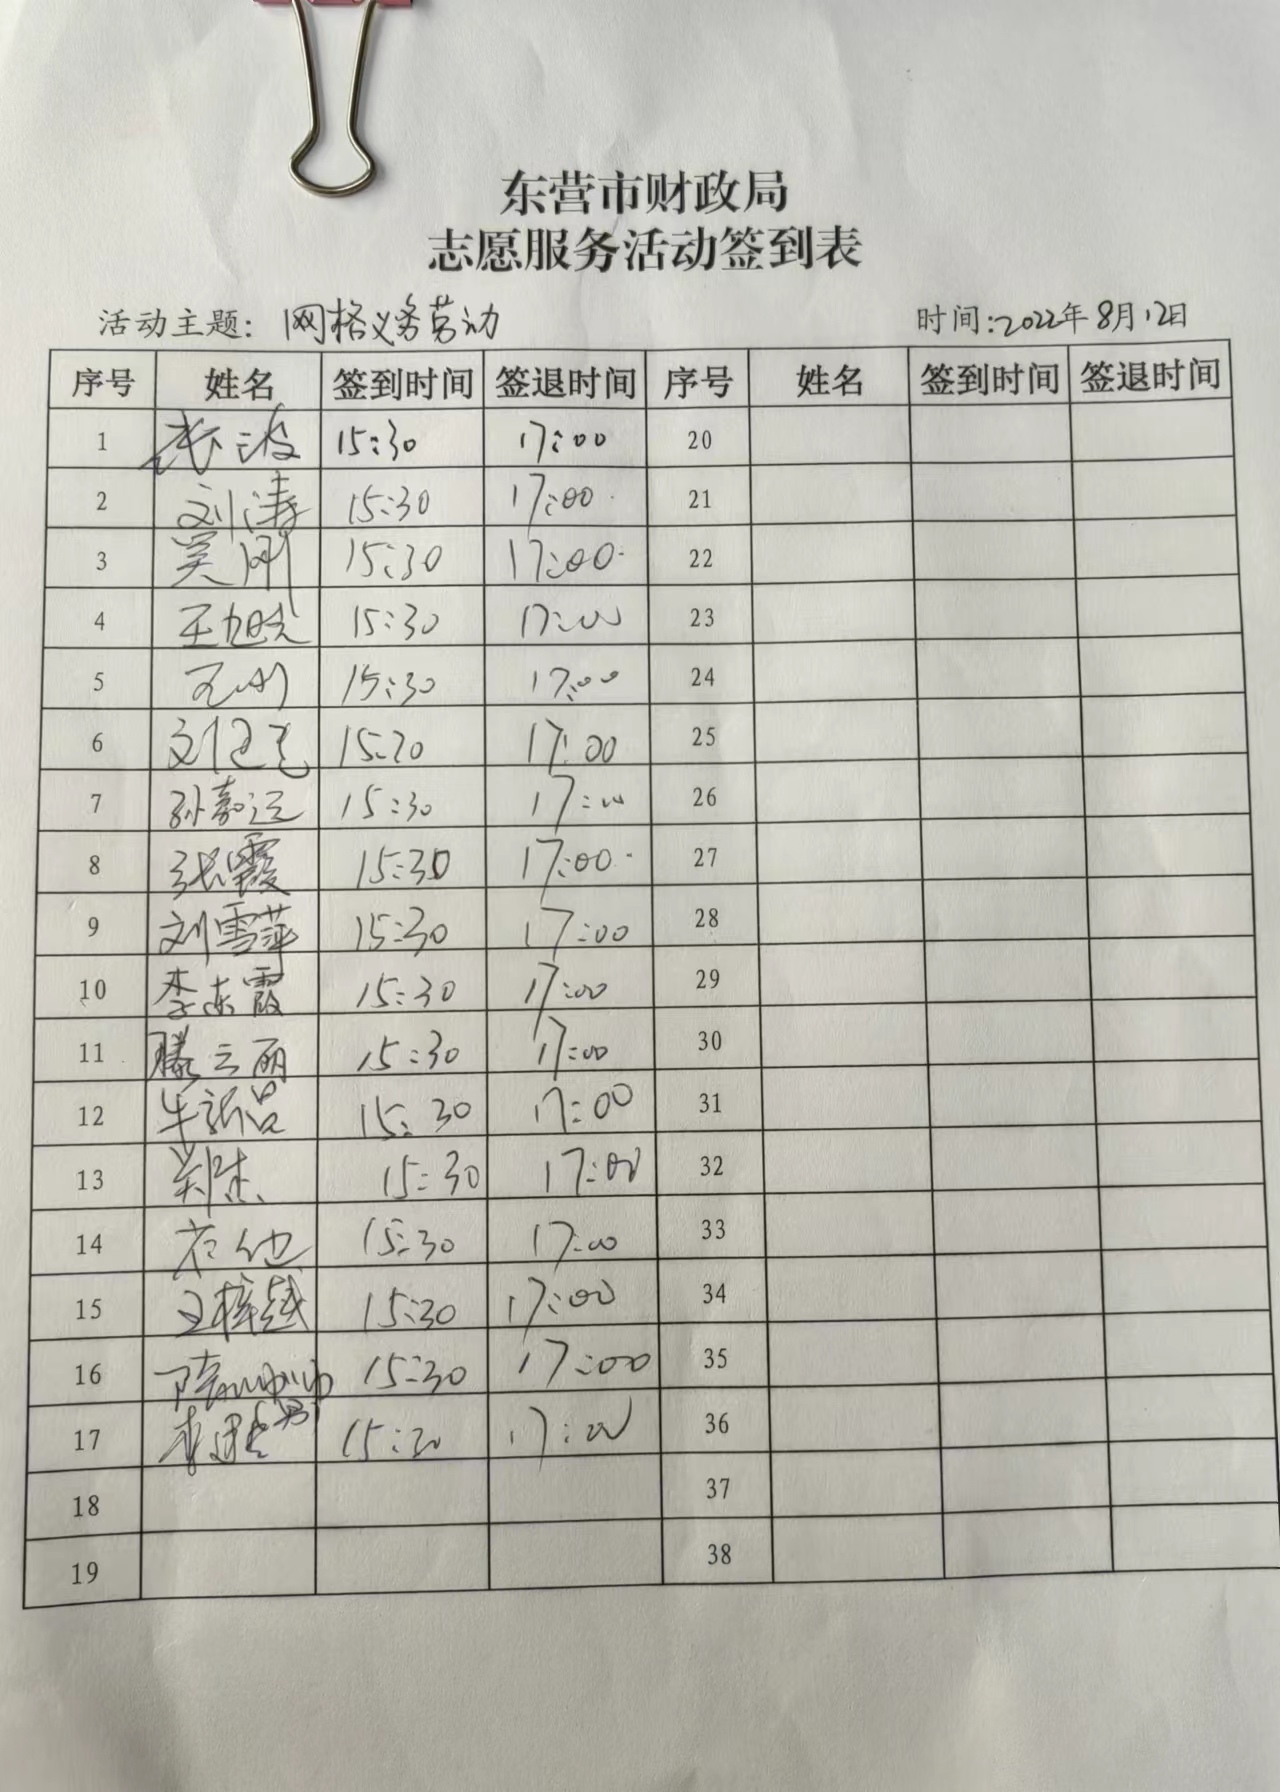 东营市财政局
志愿服务活动签到表
活动主题: 网格义务劳动 时间:2022年8月12日
序号 姓名 签到时间 签退时间 序号 姓名 签到时间 签退时间
1 15:30 17:00 20
2 刘涛 15:30 17:00 21
3 吴刚 15:30 17:00 22
4 王旭 15:30 17:00 23
5 15:30 17:00 24
6 刘 15:20 17:00 25
7 孙嘉 15:30 17:00 26
8 张霞 15:30 17:00 27
9 刘雪萍 15:30 17:00 28
10 李东霞 15:30 17:00 29
11 滕云丽 15:30 17:00 30
12 牛新昌 15:30 17:00 31
13 15:30 17:00 32
14 15:30 17:00 33
15 王梓越 15:30 17:00 34
16 15:30 17:00 35
17 李建 15:30 17:00 36
18 37
19 38